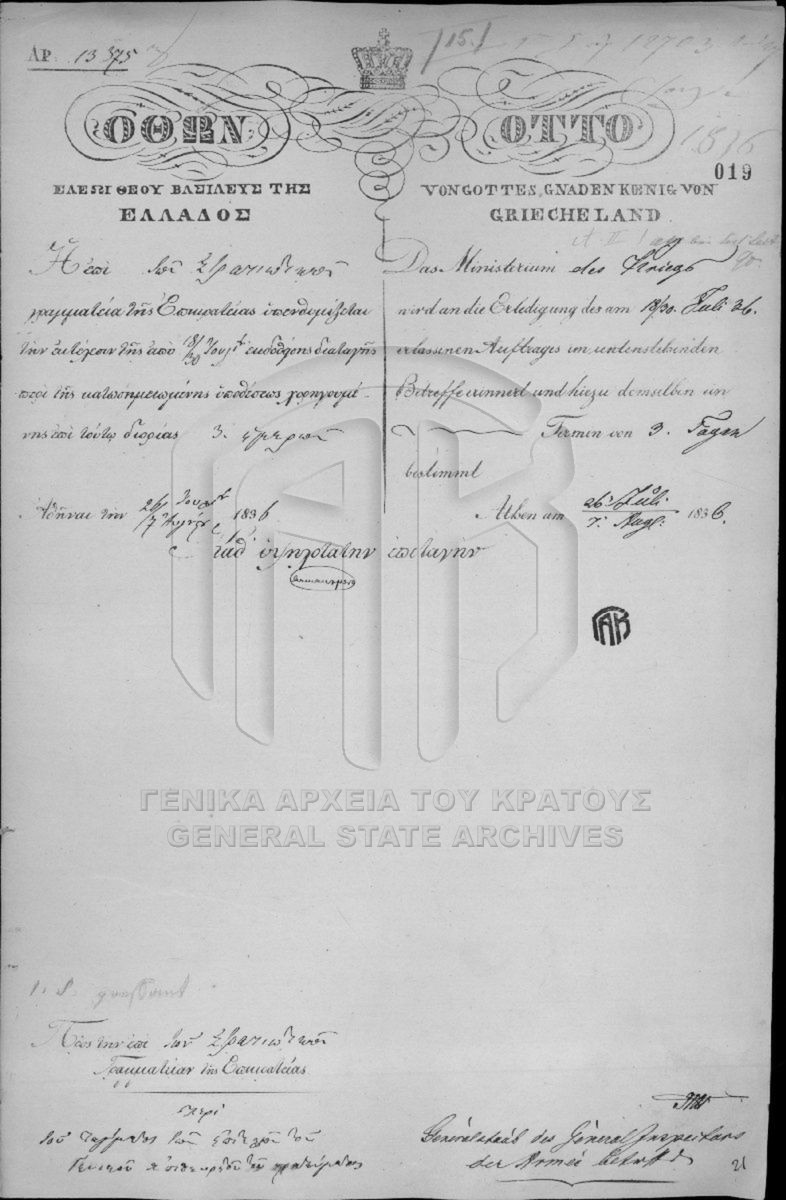 ΑΡ. 13375
/15./
ΟΘΩΝ
ΕΛΕΩι ΘΕΟΥ ΒΑΣΙΛΕΥΣ ΤΗΣ
ΕΛΛΑΔΟΣ
Ἡ ἐπὶ τῶν Στρατιωτικῶν
γραμματεία τῆς Ἐπικρατείας ὑπενθυμίζεται
τὴν ἐκτέλεσιν τῆς ἀπὸ 18/30 Ἰουλ. ἐκδοθείσης διαταγῆς
περὶ τῆς κατωσημειωμένης ὑποθέσεως χορηγουμέ-
νης ἐπὶ τούτῳ διορίας 3. ἡμερῶν
Ἀθῆναι τὴν 26 Ἰουλ. / 7 Αὐγ. 1836
OTTO
VON GOTTES GNADEN KŒNIG VON
GRIECHELAND
1836
019
Das Ministerium des Kriegs
wird an die Erledigung des am 18/30. Juli 36.
erlassenen Auftrages im untenstehenden
Betreffe erinnert und hiezu demselben ein
Termin von 3. Tagen
bestimmt
Athen am 26. Juli / 7. Aug. 1836.
καθ ὑψηλοτάτην ἐπιταγήν
ΓΑΚ
ΓΕΝΙΚΑ ΑΡΧΕΙΑ ΤΟΥ ΚΡΑΤΟΥΣ
GENERAL STATE ARCHIVES
Πρὸς τὴν ἐπὶ τῶν Στρατιωτικῶν
Γραμματείαν τῆς Ἐπικρατείας
περὶ
τοῦ τῶν τοῦ
Γενικοῦ τοῦ στρατεύματος
Generalstaab des General Inspectors
der Armee betrff.
21